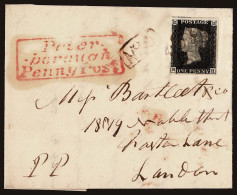 Peter-
borough
Penny Post
POSTAGE
ONE PENNY
Messrs Bartlett & Co
Noble Street
Foster Lane
London
PP